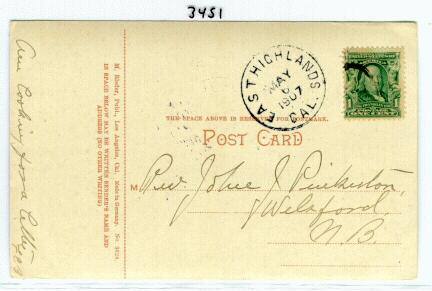 3451
EAST HIGHLANDS
MAY
1907
CAL.
1 1
ONE CENT
THE SPACE ABOVE IS RESERVED FOR POSTMARK.
POST CARD
M
Rev. John J Pinkerton,
Welsford,
N.B.
M. Rieder, Publ., Los Angeles, Cal. Made in Germany.
IN SPACE BELOW MAY BE WRITTEN SENDER'S NAME AND
ADDRESS (NO OTHER WRITING)
Am looking for a letter